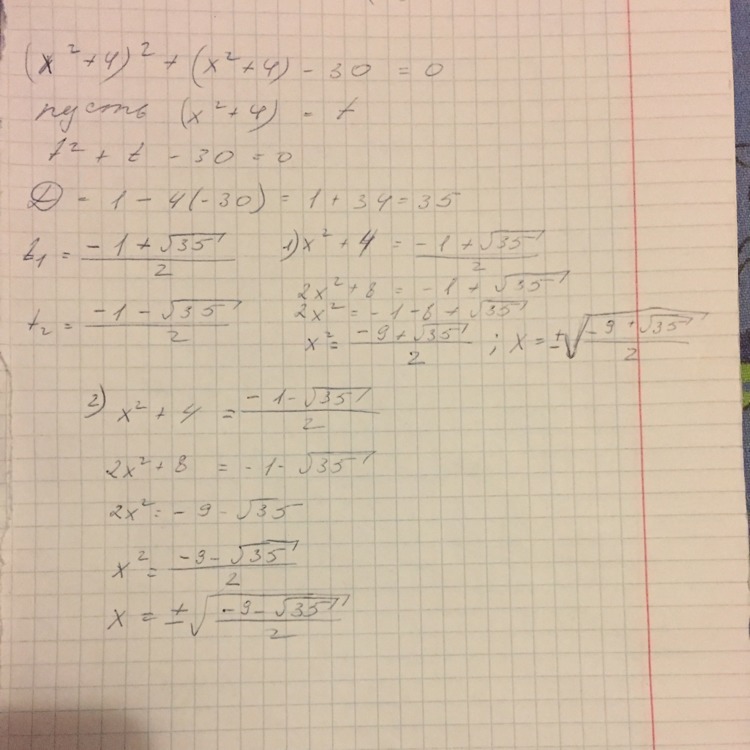 (x²+4)² + (x²+4) - 30 = 0
пусть (x²+4) = t
t² + t - 30 = 0
D = 1 - 4(-30) = 1 + 34 = 35
t₁ = (-1+√35)/2
1) x² + 4 = (-1+√35)/2
2x² + 8 = -1 + √35
t₂ = (-1-√35)/2
2x² = -1-8+√35
x² = (-9+√35)/2 ; x = ±√((-9+√35)/2)
2) x² + 4 = (-1-√35)/2
2x² + 8 = -1-√35
2x² = -9-√35
x² = (-9-√35)/2
x = ±√((-9-√35)/2)